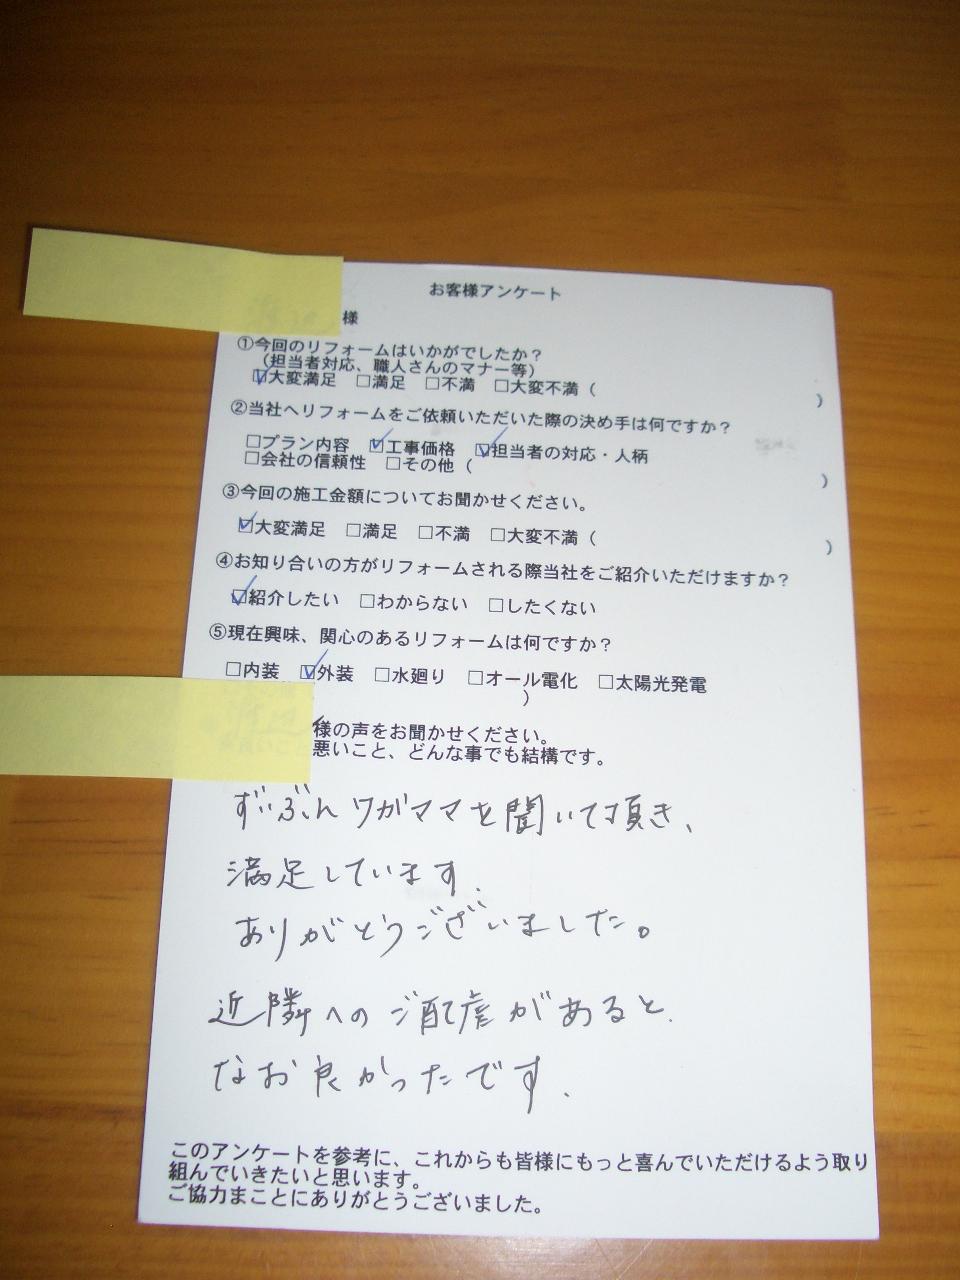 お客様アンケート
様
①今回のリフォームはいかがでしたか？
(担当者対応、職人さんのマナー等)
☑大変満足 □満足 □不満 □大変不満 ( )
②当社へリフォームをご依頼いただいた際の決め手は何ですか？
□プラン内容 ☑工事価格 ☑担当者の対応・人柄
□会社の信頼性 □その他 ( )
③今回の施工金額についてお聞かせください。
☑大変満足 □満足 □不満 □大変不満 ( )
④お知り合いの方がリフォームされる際当社をご紹介いただけますか？
☑紹介したい □わからない □したくない
⑤現在興味、関心のあるリフォームは何ですか？
□内装 ☑外装 □水廻り □オール電化 □太陽光発電
)
様の声をお聞かせください。
悪いこと、どんな事でも結構です。
ずいぶんワガママを聞いて頂き、
満足しています.
ありがとうございました。
近隣へのご配慮があると.
なお良かったです.
このアンケートを参考に、これからも皆様にもっと喜んでいただけるよう取り
組んでいきたいと思います。
ご協力まことにありがとうございました。